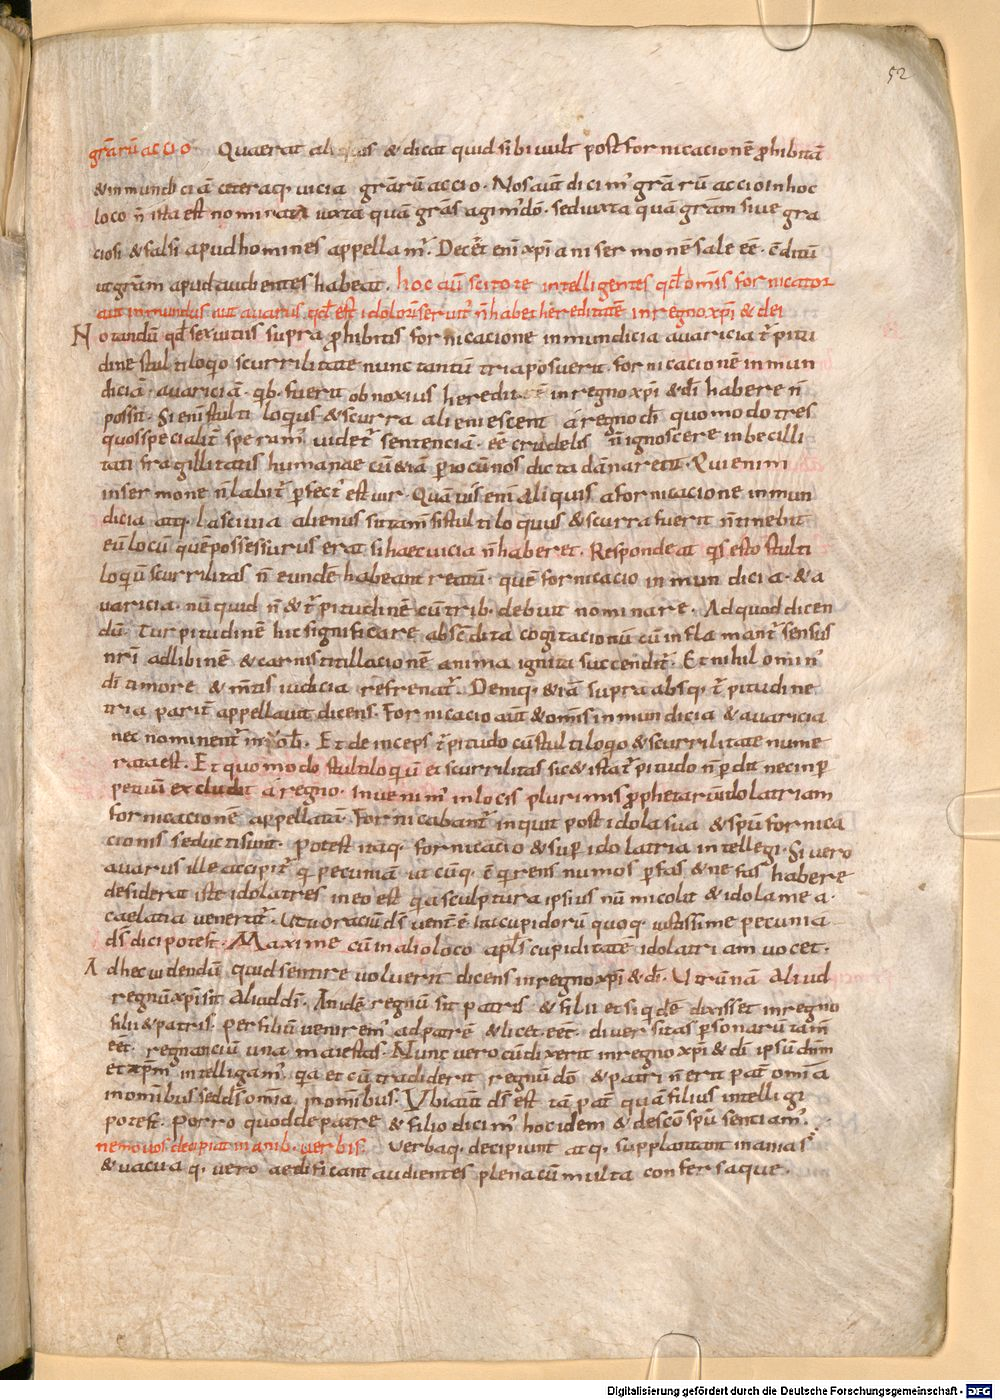 52
grarū accio Quaerat aliquis & dicat quid sibi uult post fornicacionē phibitā
& inmundiciā ceteraq. uicia grarū accio. Nos aut dicim' grarū accio in hoc
loco n ista est nominata iuxta quā gras agim' dō. sed iuxta quā gram siue gra
ciosi & salsi apud homines appellam'. Decet eni xpiani sermonē sale eē cditū
ut gram apud audientes habeat. hoc aut scitote intelligentes qd omis fornicator
aut inmundus aut auarus qd est idolorū seruit' n habet hereditatē in regno xpi & dei
Notandū qd sex uitiis supra phibitis fornicacione inmundicia auaricia t'pitu
dine stultiloqo scurrilitate nunc tantū tria posuerit. fornicacionē inmun
diciā. auariciā. qb. fuerit obnoxius hereditatē in regno xpi & di habere n
possit. Si eni stultiloqus & scurra alieni essent a regno di quomodo tres
quos specialit speram' uidet' sentenciā eē crudelis n ignoscere inbecilli
tati fragillitatis humanae cū & iā p iocū nos dicta dānarent. Qui enim
in sermone n labit' pfect' est uir. Quāuis eni aliquis a fornicacione inmun
dicia atq. lasciuia alienus sit tam si stultiloquus & scurra fuerit n tinebit
eū locū quē possessurus erat si haec uicia n haberet. Respondeat qs esto stulti
loqū scurrilitas n eundē habeant reatū. quē fornicacio inmundicia. & a
uaricia. nū quid n & t'pitudinē cū trib. debuit nominare. Ad quod dicen
dū. Turpitudinē hic significare abscdita cogitacionū cū inflamant' sensus
nri ad libinē & carnis titillacionē anima ignita succendit'. Et nihilomin'
di timore & mtis iudicia refrenat'. Deniq. & iā supra absq. t'pitudine
tria parit appellauit dicens. Fornicacio aut & omis inmundicia & auaricia
nec nominent' in uob. Et deinceps t'pitudo cū stultiloqo & scurrilitate nume
rata est. Et quomodo stultiloqiū et scurrilitas sic & ista t'pitudo n pdit nec inp
petuū excludit a regno. inuenim' in locis plurimis pphetarū idolatriam
fornicacionē appellatā. Fornicabant' inquit post idola sua & spu fornica
cionis seducti sunt. potest itaq. fornicacio & sup idolatria intellegi. Si uero
auarus ille accipit' q pecuniā utcūq. ē qrens numos p fas & nefas habere
desiderat iste idolatres in eo est qa sculptura ipsius nūmi colit & idolamea.
caelatia ueneratr'. Ut uoraciū ds uent' ē ita cupidorū quoq. iustissime pecunia
ds dici potest. Maxime cū in alio loco apls cupiditatē idolatriam uocet.
Adhec uidendū quid sentire uoluerit dicens in regno xpi & di. Utrūnā aliud
regnū xpi sit aliud di. An idē regnū sit patris & filii et siqdē dixisset in regno
filii & patris. per filiū uenirem' ad patrē & licet eēt diuersitas psonarū tam
eēt regnanciū una maiestas. Nunc uero cū dixerit in regno xpi & di ipsū dnm
et xpm intelligam' qa et cū tradiderit regnū dō & patri n erit pat omia
in omibus sed ds omia in omibus. Ubi aut ds est tā pat quā filius intelligi
potest. Porro quod de patre & filio dicim' hoc idem & de sco spu sentiam'.
nemo uos decipiat inanib. uerbis. Uerbaq. decipiunt atq. supplantant inania s'
& uacua q. uero aedificant audientes plena cūmulta confersaque.
Digitalisierung gefördert durch die Deutsche Forschungsgemeinschaft - DFG